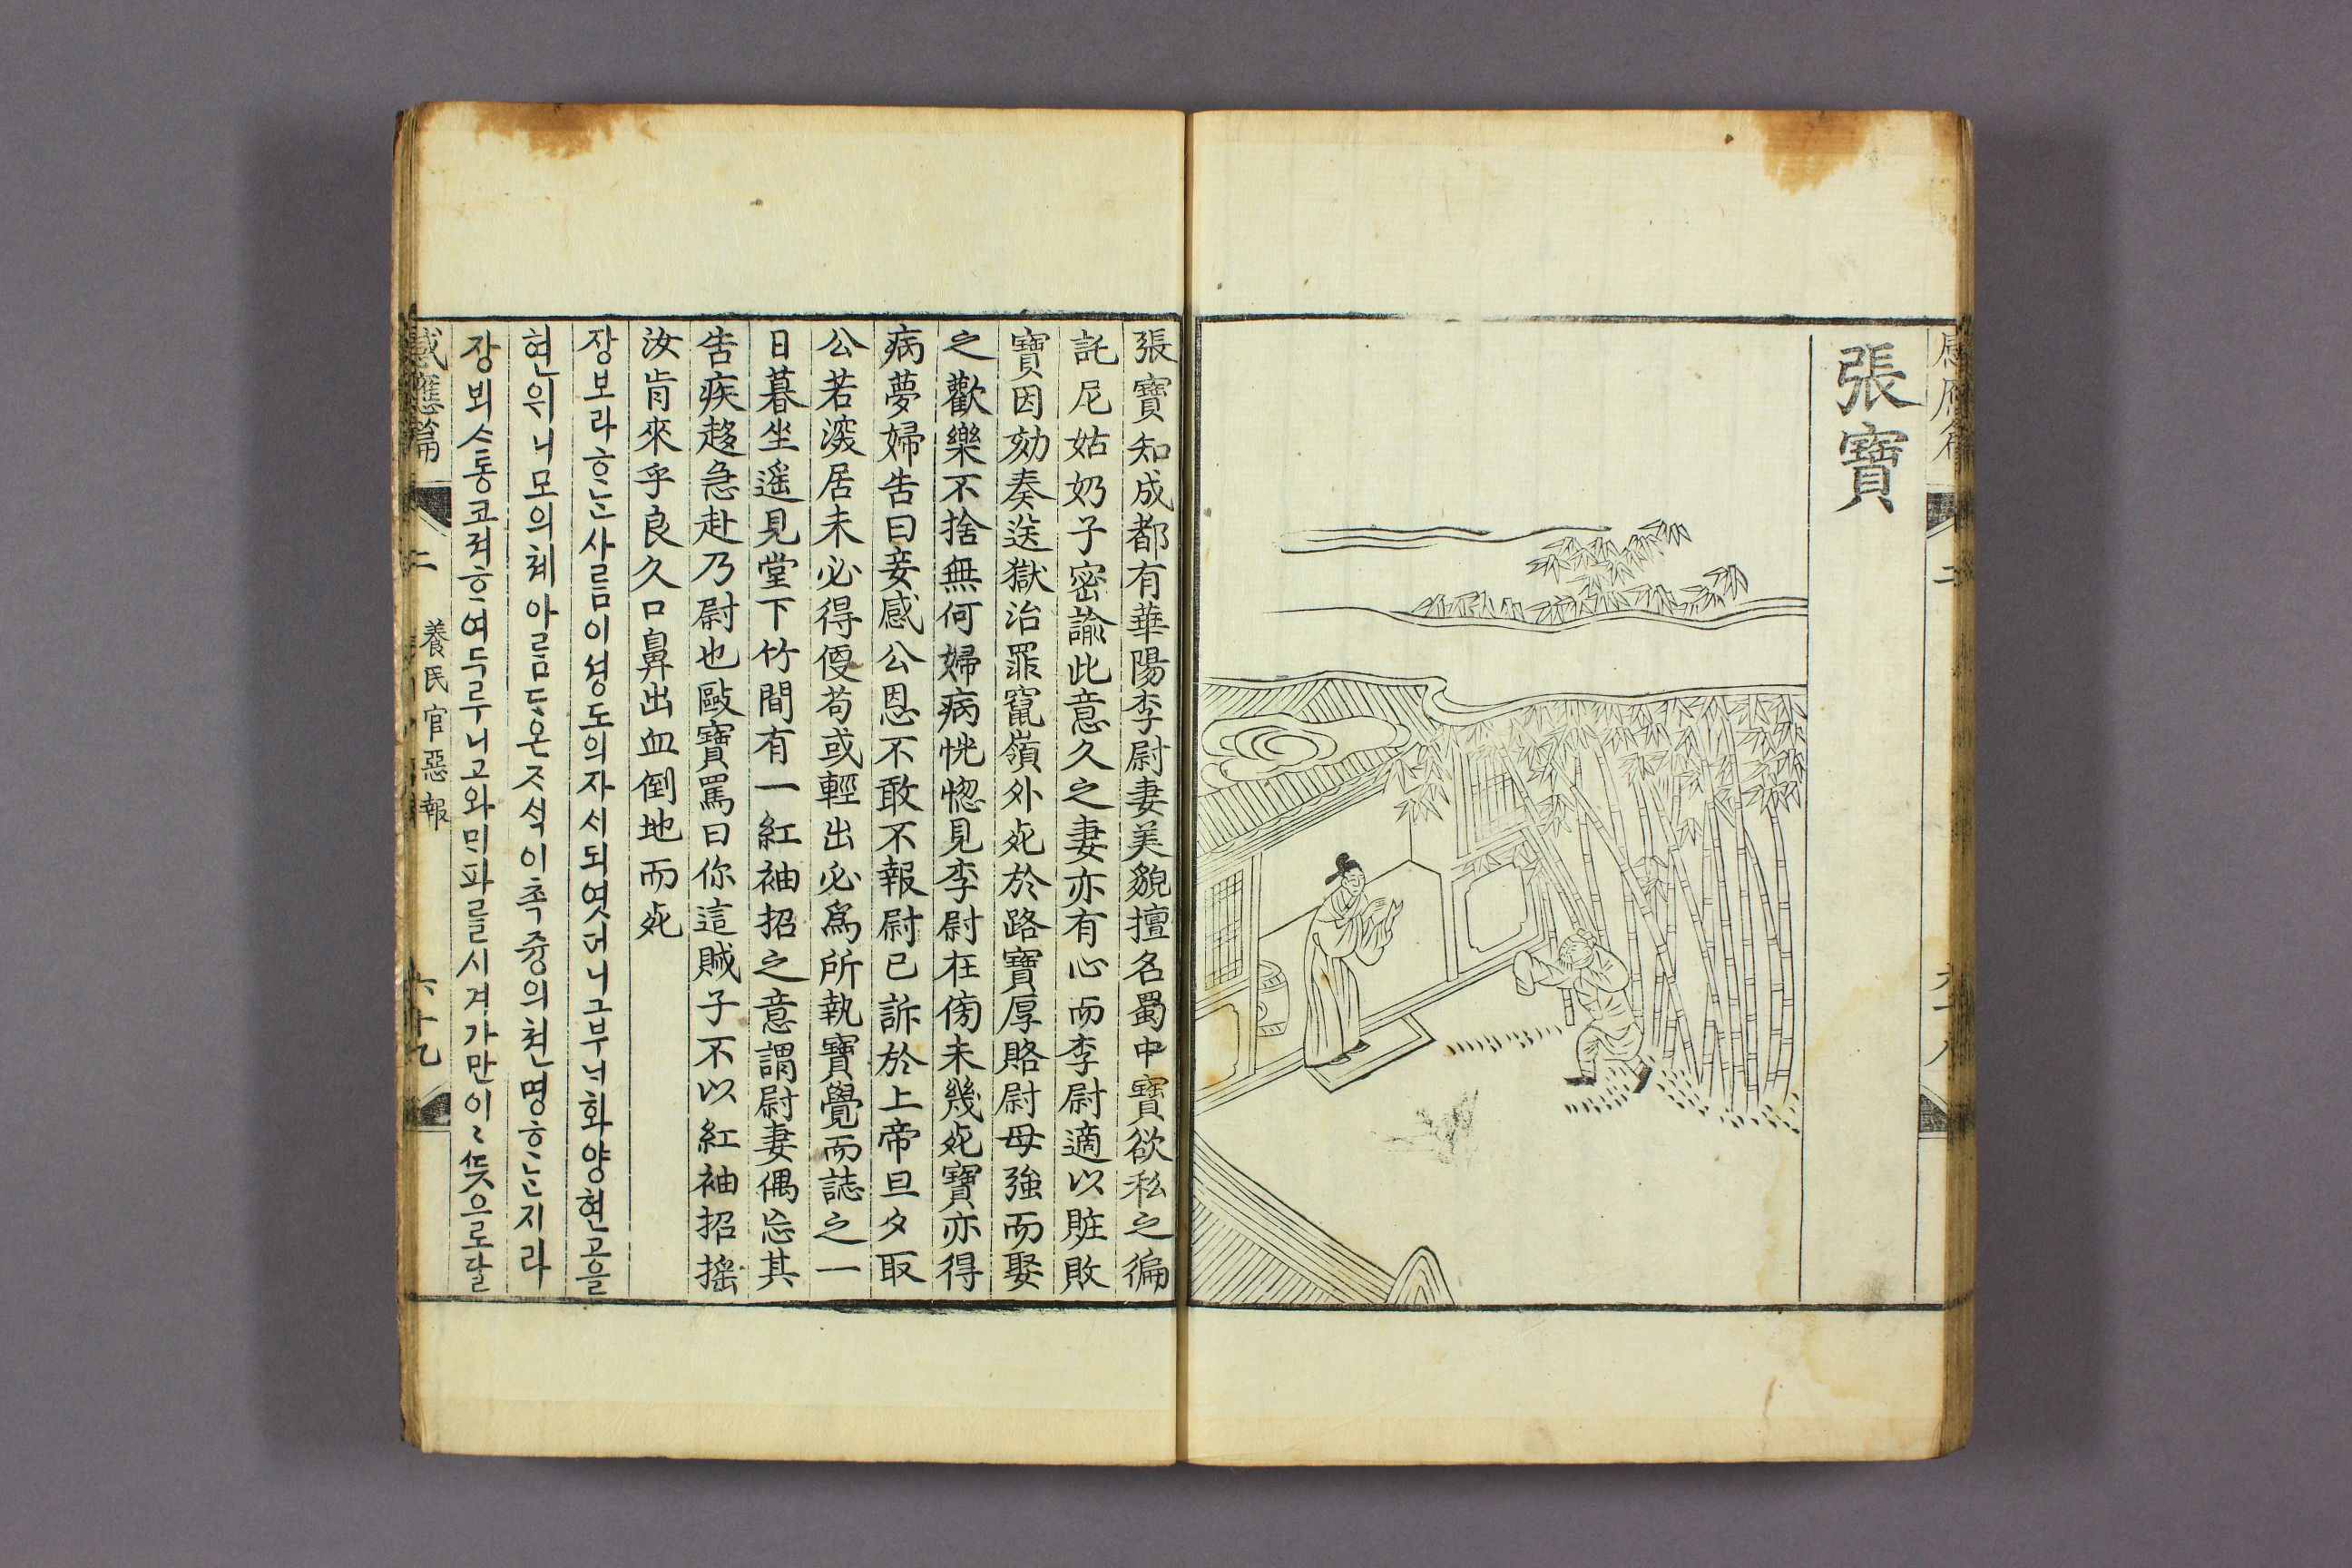 張寶
張寶知成都有華陽李尉妻美貌擅名蜀中寶欲私之徧
託尼姑奶子密諭此意久之妻亦有心而李尉適以賍敗
寶因劾奏送獄治罪竄嶺外死於路寶厚賂尉母強而娶
之歡樂不捨無何婦病恍惚見李尉在傍未幾死寶亦得
病夢婦告曰妾感公恩不敢不報尉已訴於上帝旦夕取
公若深居未必得便苟或輕出必爲所執寶覺而誌之一
日暮坐遙見堂下竹間有一紅袖招之意謂尉妻偶忘其
告疾趍急赴乃尉也毆寶罵曰你這賊子不以紅袖招搖
汝肯來乎良久口鼻出血倒地而死
장보라 ᄒᆞᄂᆞᆫ 사ᄅᆞᆷ이 셩도의 자시 되엿더니 그 부ᄂᆡ 화양현 고을
현위 니모의 쳬 아ᄅᆞᆷᄃᆞ온 ᄌᆞ석이 촉즁의 쳔명ᄒᆞᄂᆞᆫ지라
장뵈 ᄉᆞ통코져 ᄒᆞ여 두루 니고와 ᄆᆡ파를 시겨 가만이〻 ᄯᅳᆺ으로 달
感應篇
二
養民官惡報
六十九